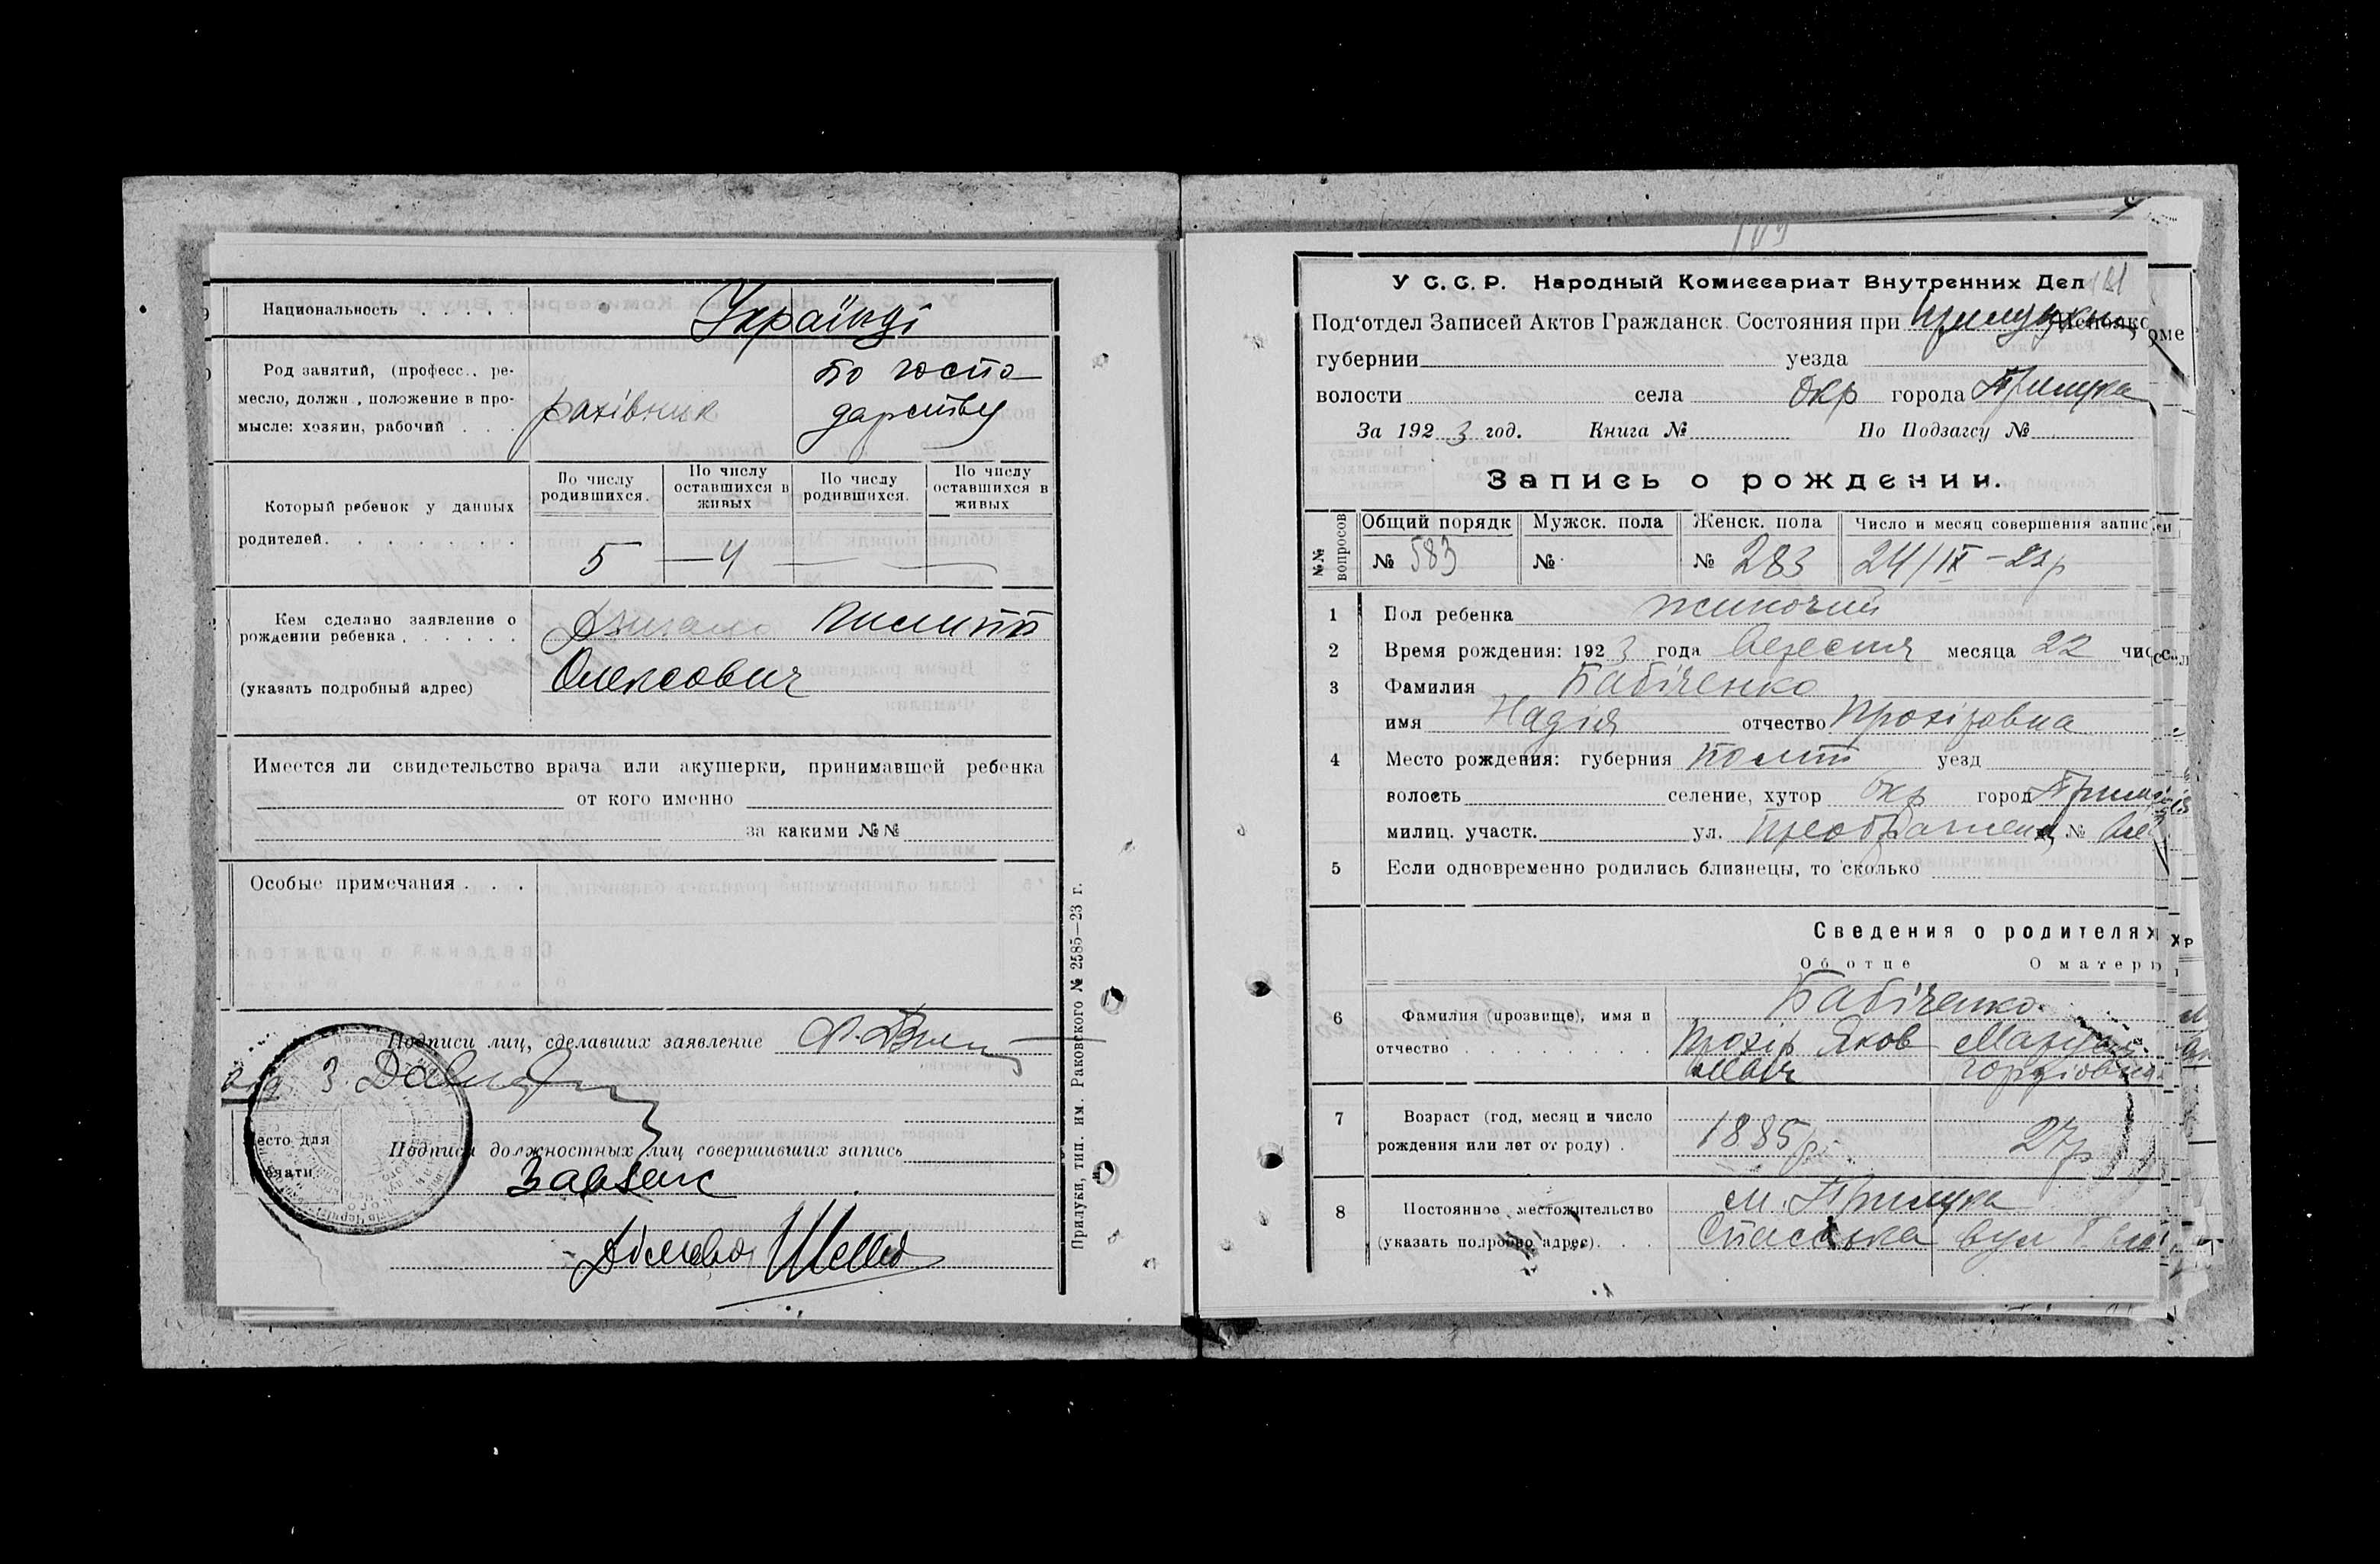 Национальность . . . . . Українці
Род занятий, (професс., ре-
месло, должн., положение в про-
мысле: хозяин, рабочий . . .
рахівник
по госпо-
дарству
Который ребенок у данных
родителей. . . . . . . .
По числу
родившихся.
По числу
оставшихся в
живых
По числу
родившихся.
По числу
оставшихся в
живых
5 — 4 — —
Кем сделано заявление о
рождении ребенка . . . . . .
(указать подробный адрес)
Пилипп
Олексович
Имеется ли свидетельство врача или акушерки, принимавшей ребенка
от кого именно
за какими №№
Особые примечания . . .
Подписи лиц, сделавших заявление
Место для
печати
Подписи должностных лиц совершивших запись
Завзагс
Діловод
Прилуки, тип. им. Раковского № 2585—23 г.
У С. С. Р. Народный Комиссариат Внутренних Дел
Под'отдел Записей Актов Гражданск. Состояния при
губернии уезда
волости села Окр города Прилука
За 192 3 год. Книга № По Подзагсу №
Запись о рождении.
№№
вопросов
Общий порядк
№ 583
Мужск. пола
№
Женск. пола
№ 283
Число и месяц совершения запис
24/IX – 23р
1 Пол ребенка жиночий
2 Время рождения: 192 3 года вересня месяца 22 чис
3 Фамилия Бабіченко
имя Надія отчество Прохіровна
4 Место рождения: губерния Полт уезд
волость селение, хутор Окр город Прилу
милиц. участк. ул. Преображен №
5 Если одновременно родились близнецы, то сколько
Сведения о родителях
Об отце О матери
6 Фамилия (прозвище), имя и
отчество . . . . . . . .
Бабіченко
Прохір Яков
левич
Марія
Гордіовна
7 Возраст (год, месяц и число
рождения или лет от роду) .
1885р
27р
8 Постоянное местожительство
(указать подробно адрес). . .
м. Прилука
Спаська вул